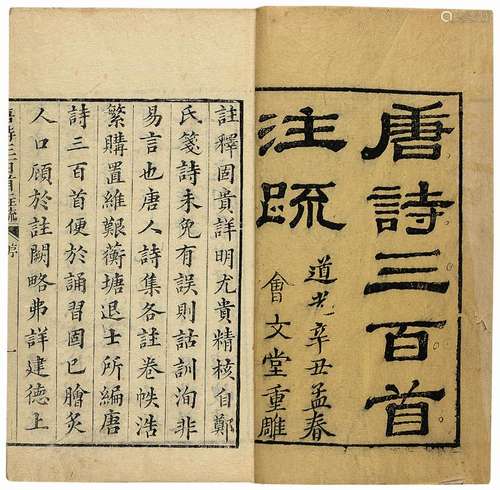 唐詩三百首
注疏
道光辛丑孟春
會文堂重雕
註釋固貴詳明尤貴精核自鄭
氏箋詩未免有誤則詁訓洵非
易言也唐人詩集各註卷帙浩
繁購置維艱蘅塘退士所編唐
詩三百首便於誦習固已膾炙
人口顧於註闕略弗詳建德上
唐詩三百首註疏 序 一